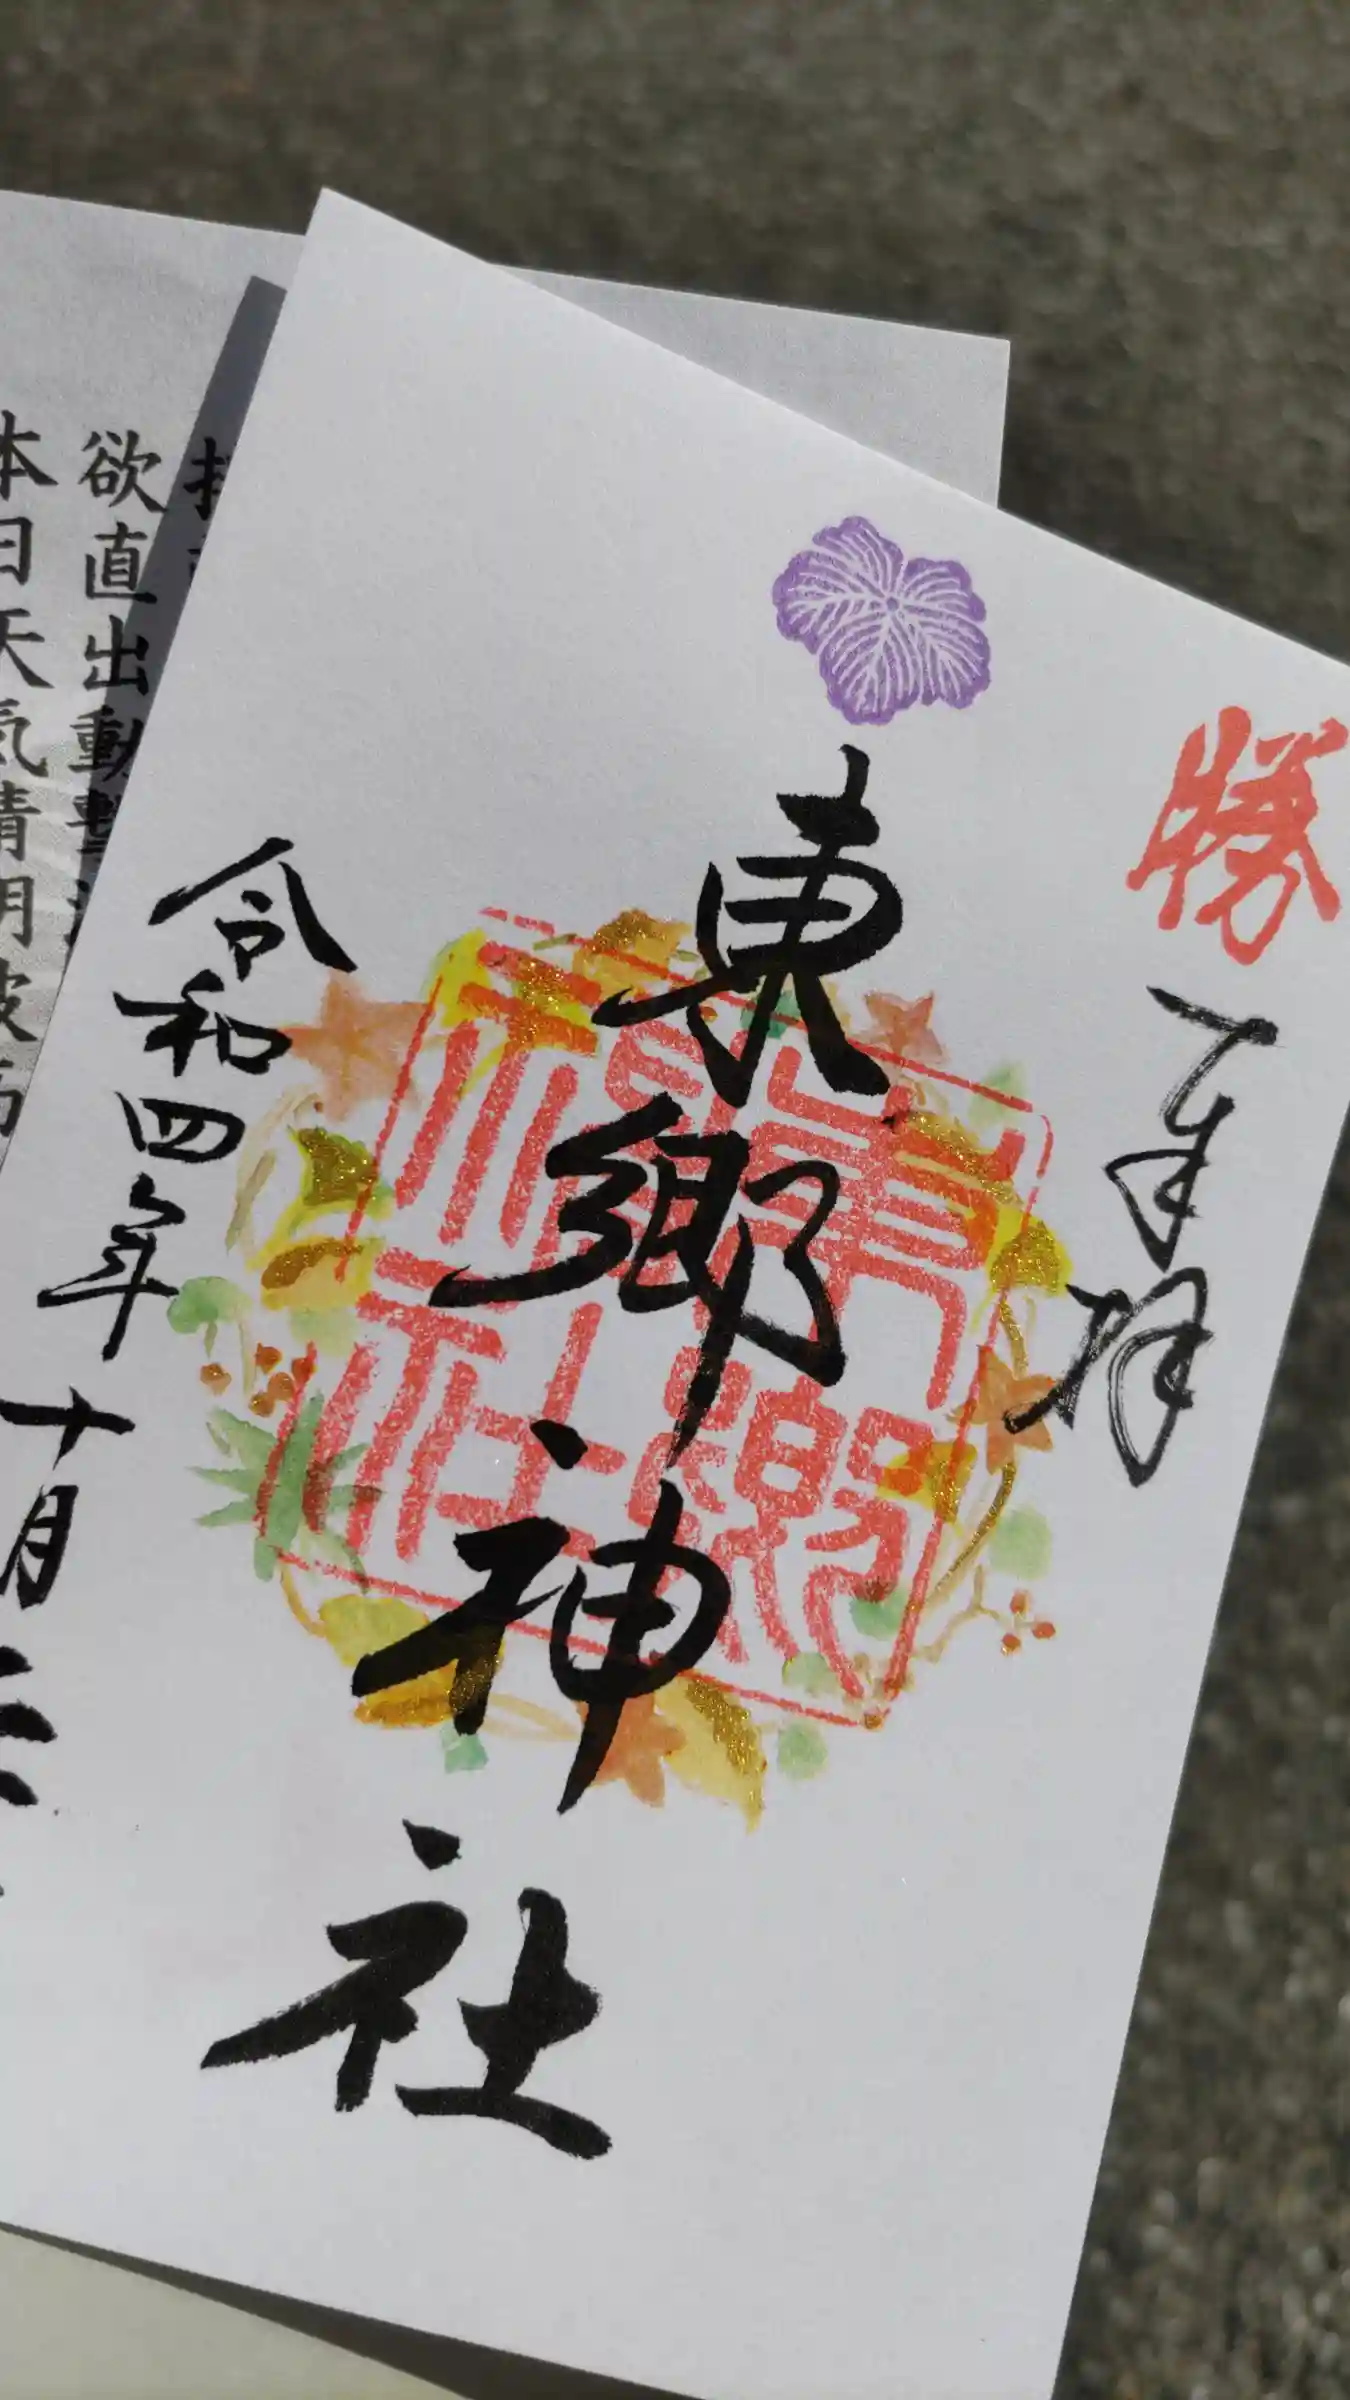 勝
奉拝
東郷神社
東郷神社
令和四年十月二
欲直出動撃
本日天氣晴朗波高